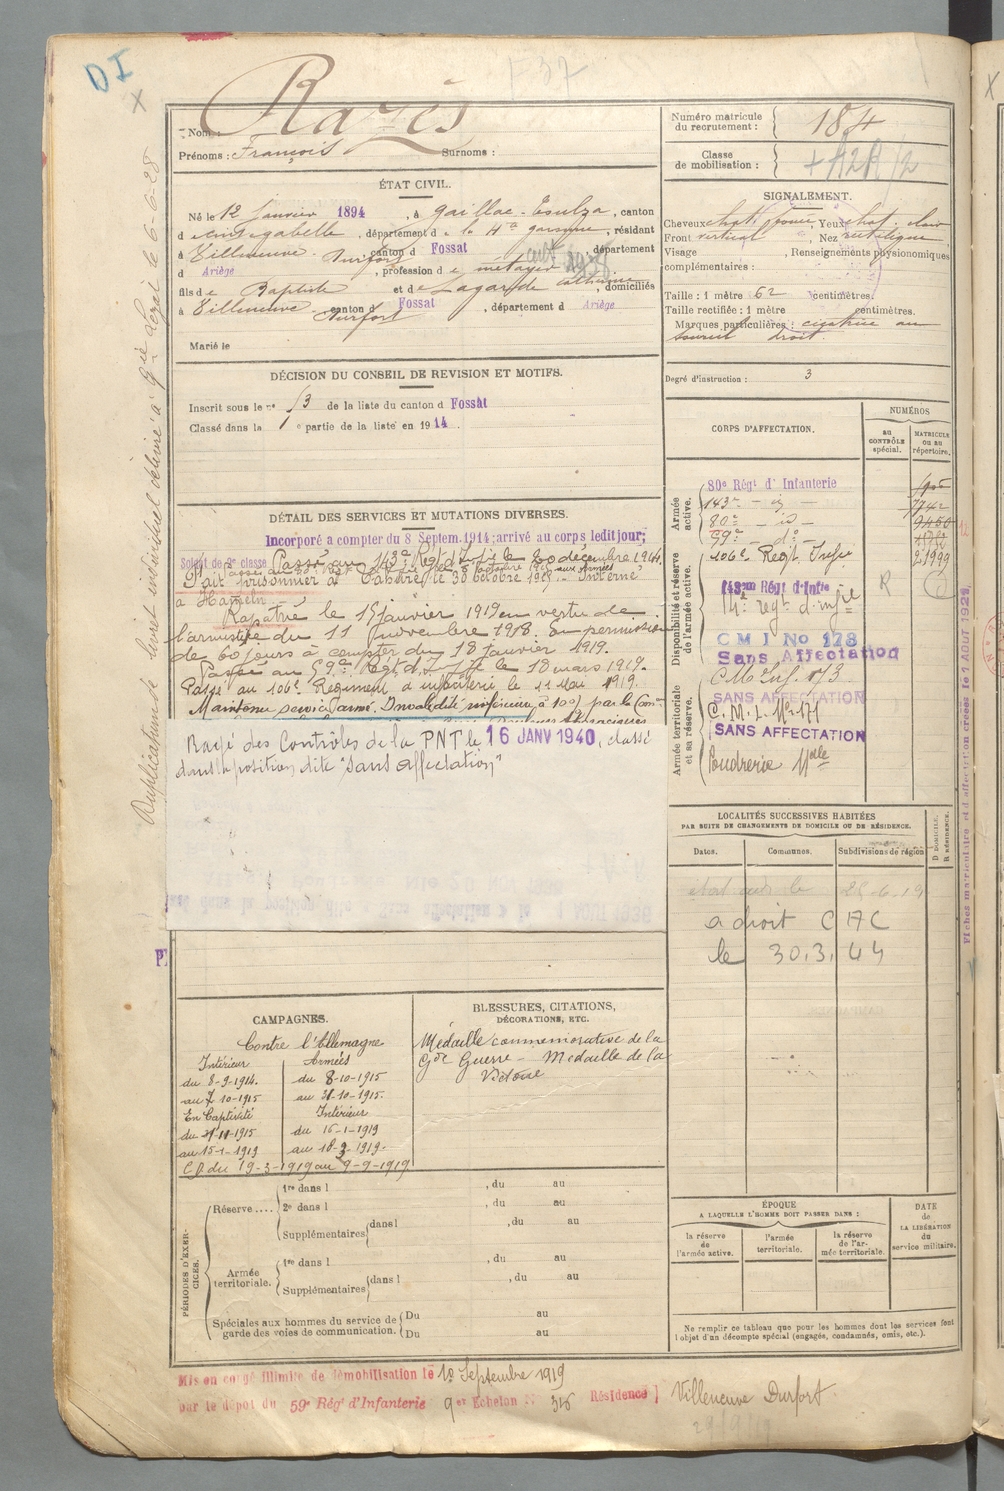 DI
Nom : Razès
Prénoms : François Surnoms :
Numéro matricule du recrutement : 184
Classe de mobilisation :
ÉTAT CIVIL.
Né le 12 janvier 1894, à Gaillac-Toulza, canton
d e Cintegabelle, département d e la Hte garonne, résidant
à Villeneuve-Durfort, canton d Fossat, département
d Ariège, profession d e métayer
fils d e Baptiste et d e Lagarde Catherine, domiciliés
à Villeneuve Durfort, canton d Fossat, département d Ariège
Marié le
SIGNALEMENT.
Cheveux chat. foncé, Yeux chat. clair
Front vertical, Nez rectiligne
Visage , Renseignements physionomiques
complémentaires :
Taille : 1 mètre 62 centimètres.
Taille rectifiée : 1 mètre centimètres.
Marques particulières : cicatrice au
sourcil droit.
Degré d'instruction : 3
DÉCISION DU CONSEIL DE REVISION ET MOTIFS.
Inscrit sous le n° 13 de la liste du canton d Fossat
Classé dans la 1 e partie de la liste en 1914.
DÉTAIL DES SERVICES ET MUTATIONS DIVERSES.
Incorporé a compter du 8 Septem. 1914; arrivé au corps ledit jour;
Soldat de 2e classe Passé au 143e Regt d'Infie le 20 décembre 1914.
Fait prisonnier à Tahure le 30 octobre 1915 - Interné
à Hameln
Rapatrié le 15 janvier 1919 en vertu de
l'armistice du 11 novembre 1918. En permission
de 60 jours à compter du 18 janvier 1919.
Passé au 59e Regt d'Infie le 18 mars 1919.
Passé au 106e Régiment d'infanterie le 11 Mai 1919.
Maintenu service armé. Invalidité inférieure à 10% par la Com
Rayé des Contrôles de la PNT le 16 JANV 1940, classé
dans la position dite "sans affectation"
CORPS D'AFFECTATION.
NUMÉROS
AU CONTRÔLE spécial.
MATRICULE OU AU répertoire.
Armée active.
80e Régt d'Infanterie
143e - id -
7742
80e - id -
9450
59e - do -
Disponibilité et réserve de l'armée active.
106e Regt Infie
21999
R
143me Régt d'Infie
14e regt d'infie
C M I No 178
Sans Affectation
Armée territoriale et sa réserve.
C.M. Inf. 173
SANS AFFECTATION
C.M.I. No 171
SANS AFFECTATION
Poudrerie Nlle
LOCALITÉS SUCCESSIVES HABITÉES
PAR SUITE DE CHANGEMENTS DE DOMICILE OU DE RÉSIDENCE.
Dates. Communes. Subdivisions de région
D DOMICILE. R RÉSIDENCE.
a droit C A C
le 30.3.44
CAMPAGNES.
Contre l'Allemagne
Intérieur
du 8-9-1914.
au 7-10-1915
En Captivité
du 31-10-1915
au 15-1-1919
Armées
du 8-10-1915
au 31-10-1915.
Intérieur
du 16-1-1919
au 18-3-1919-
C.D. du 19-3-1919 au 9-9-1919
BLESSURES, CITATIONS,
DÉCORATIONS, ETC.
Médaille commemorative de la
Gde Guerre - Medaille de la
Victoire
PÉRIODES D'EXERCICES.
Réserve....
1re dans l , du au
2e dans l , du au
Supplémentaires dans l , du au
Armée territoriale.
1re dans l , du au
Supplémentaires dans l , du au
Spéciales aux hommes du service de garde des voies de communication.
Du au
Du au
ÉPOQUE
A LAQUELLE L'HOMME DOIT PASSER DANS :
la réserve de l'armée active.
l'armée territoriale.
la réserve de l'armée territoriale.
DATE de LA LIBÉRATION du service militaire.
Ne remplir ce tableau que pour les hommes dont les services font
l'objet d'un décompte spécial (engagés, condamnés, omis, etc.).
Mis en congé illimité de démobilisation le 10 Septembre 1919
par le dépôt du 59e Rég' d'Infanterie 9e Echelon No 316 Résidence Villeneuve Durfort.
Duplicata de livret individuel délivré à
Fiches matricule et d'affectation créées le 1 AOUT 1929